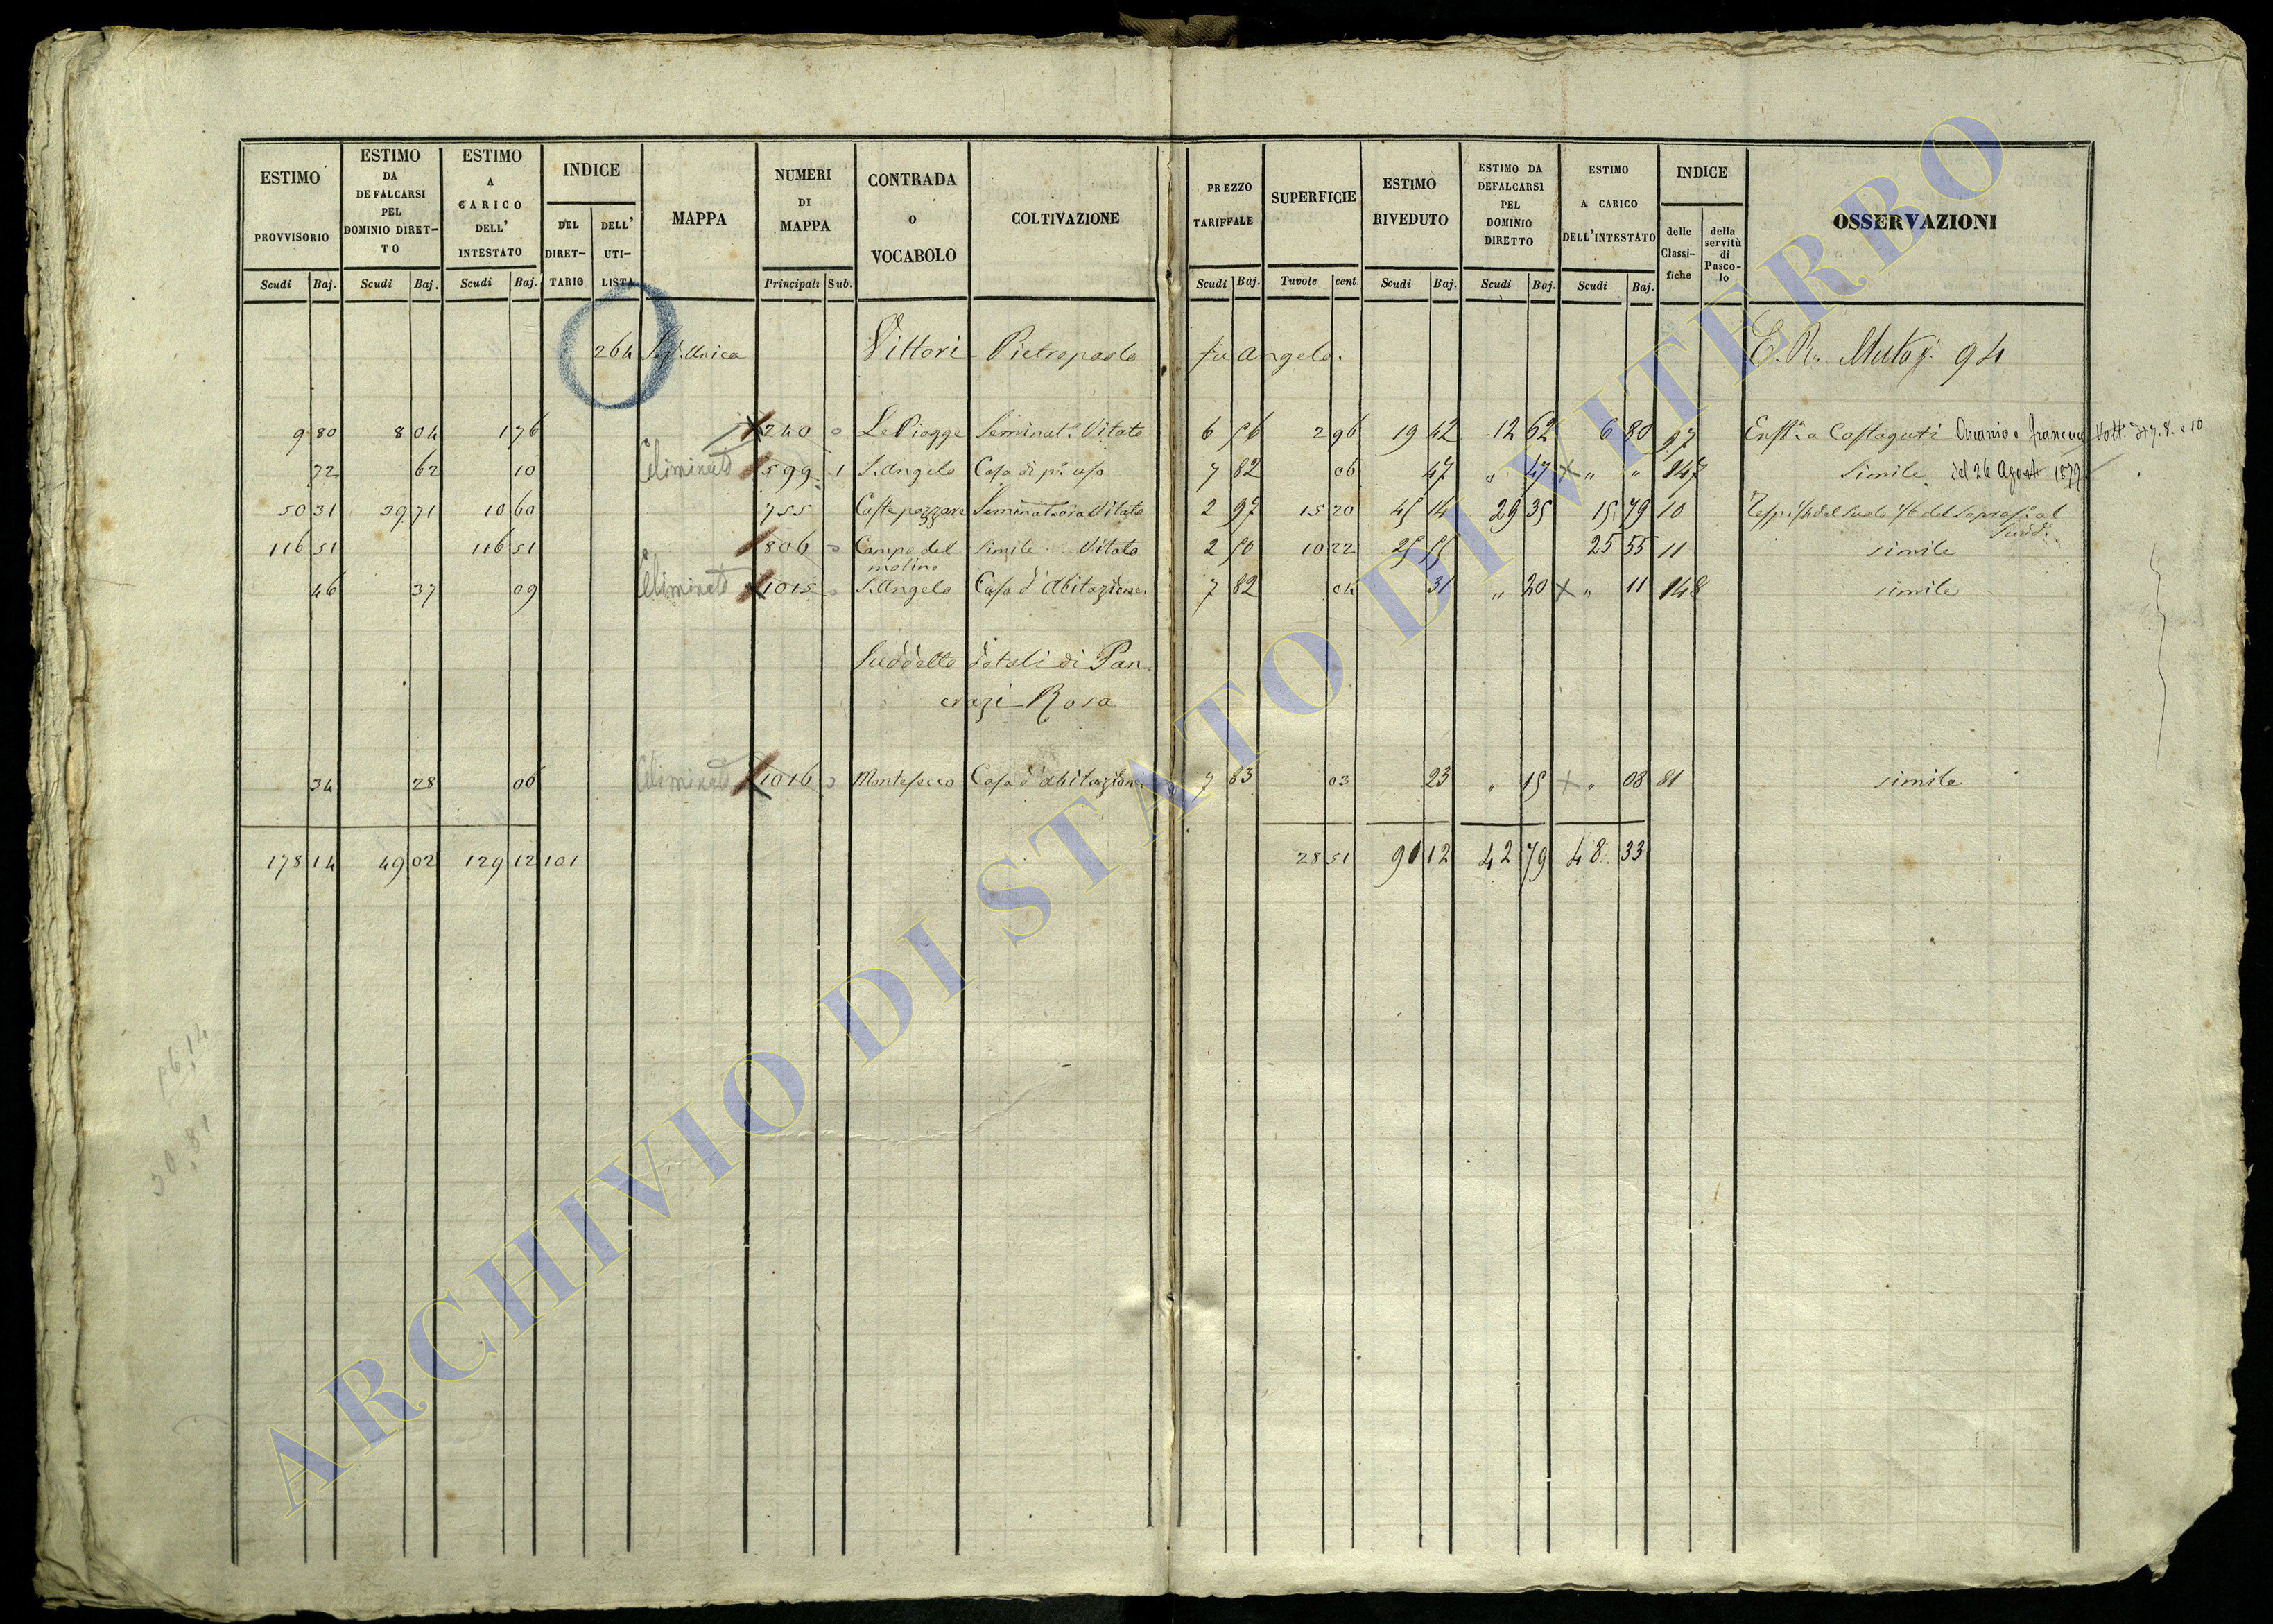 ESTIMO PROVVISORIO
ESTIMO DA DEFALCARSI PEL DOMINIO DIRETTO
ESTIMO A CARICO DELL' INTESTATO
INDICE
DEL DIRETTARIO
DELL' UTILISTA
MAPPA
NUMERI DI MAPPA
CONTRADA O VOCABOLO
COLTIVAZIONE
PREZZO TARIFFALE
SUPERFICIE
ESTIMO RIVEDUTO
ESTIMO DA DEFALCARSI PEL DOMINIO DIRETTO
ESTIMO A CARICO DELL'INTESTATO
INDICE
delle Classifiche
della servitù di Pascolo
OSSERVAZIONI
Scudi Baj. Scudi Baj. Scudi Baj. Principali Sub. Scudi Baj. Tuvole cent. Scudi Baj. Scudi Baj. Scudi Baj.
264 Sez. Unica Vittori Pietropaolo fu Angelo. 94
9 80 8 04 1 76 240 0 Le Piagge Seminat.o Vitato 6 56 2 96 19 42 12 62 6 80 97 Enft.a a Costaguti Volt. 7. 8. 10
72 62 10 Eliminato 599 1 S. Angelo Casa di p.o uso 7 82 06 47 " 47 " " 147 Simile del 26 Agosto 1879
50 31 39 71 10 60 755 Costepozzare Seminatora Vitato 2 97 15 20 45 14 29 35 15 79 10
116 51 116 51 806 0 Campo del molino simile Vitato 2 50 10 22 25 55 25 55 11 simile
46 37 09 Eliminato 1015 0 S. Angelo Casa d'abitazione 7 82 04 31 " 20 " 11 148 simile
Suddetto dotali di Pan-
crazi Rosa
34 28 06 Eliminato 1016 0 Montesecco Casa d'abitazione 7 83 03 23 " 15 " 08 81 simile
178 14 49 02 129 12 101 28 51 91 12 42 79 48 33
ARCHIVIO DI STATO DI VITERBO